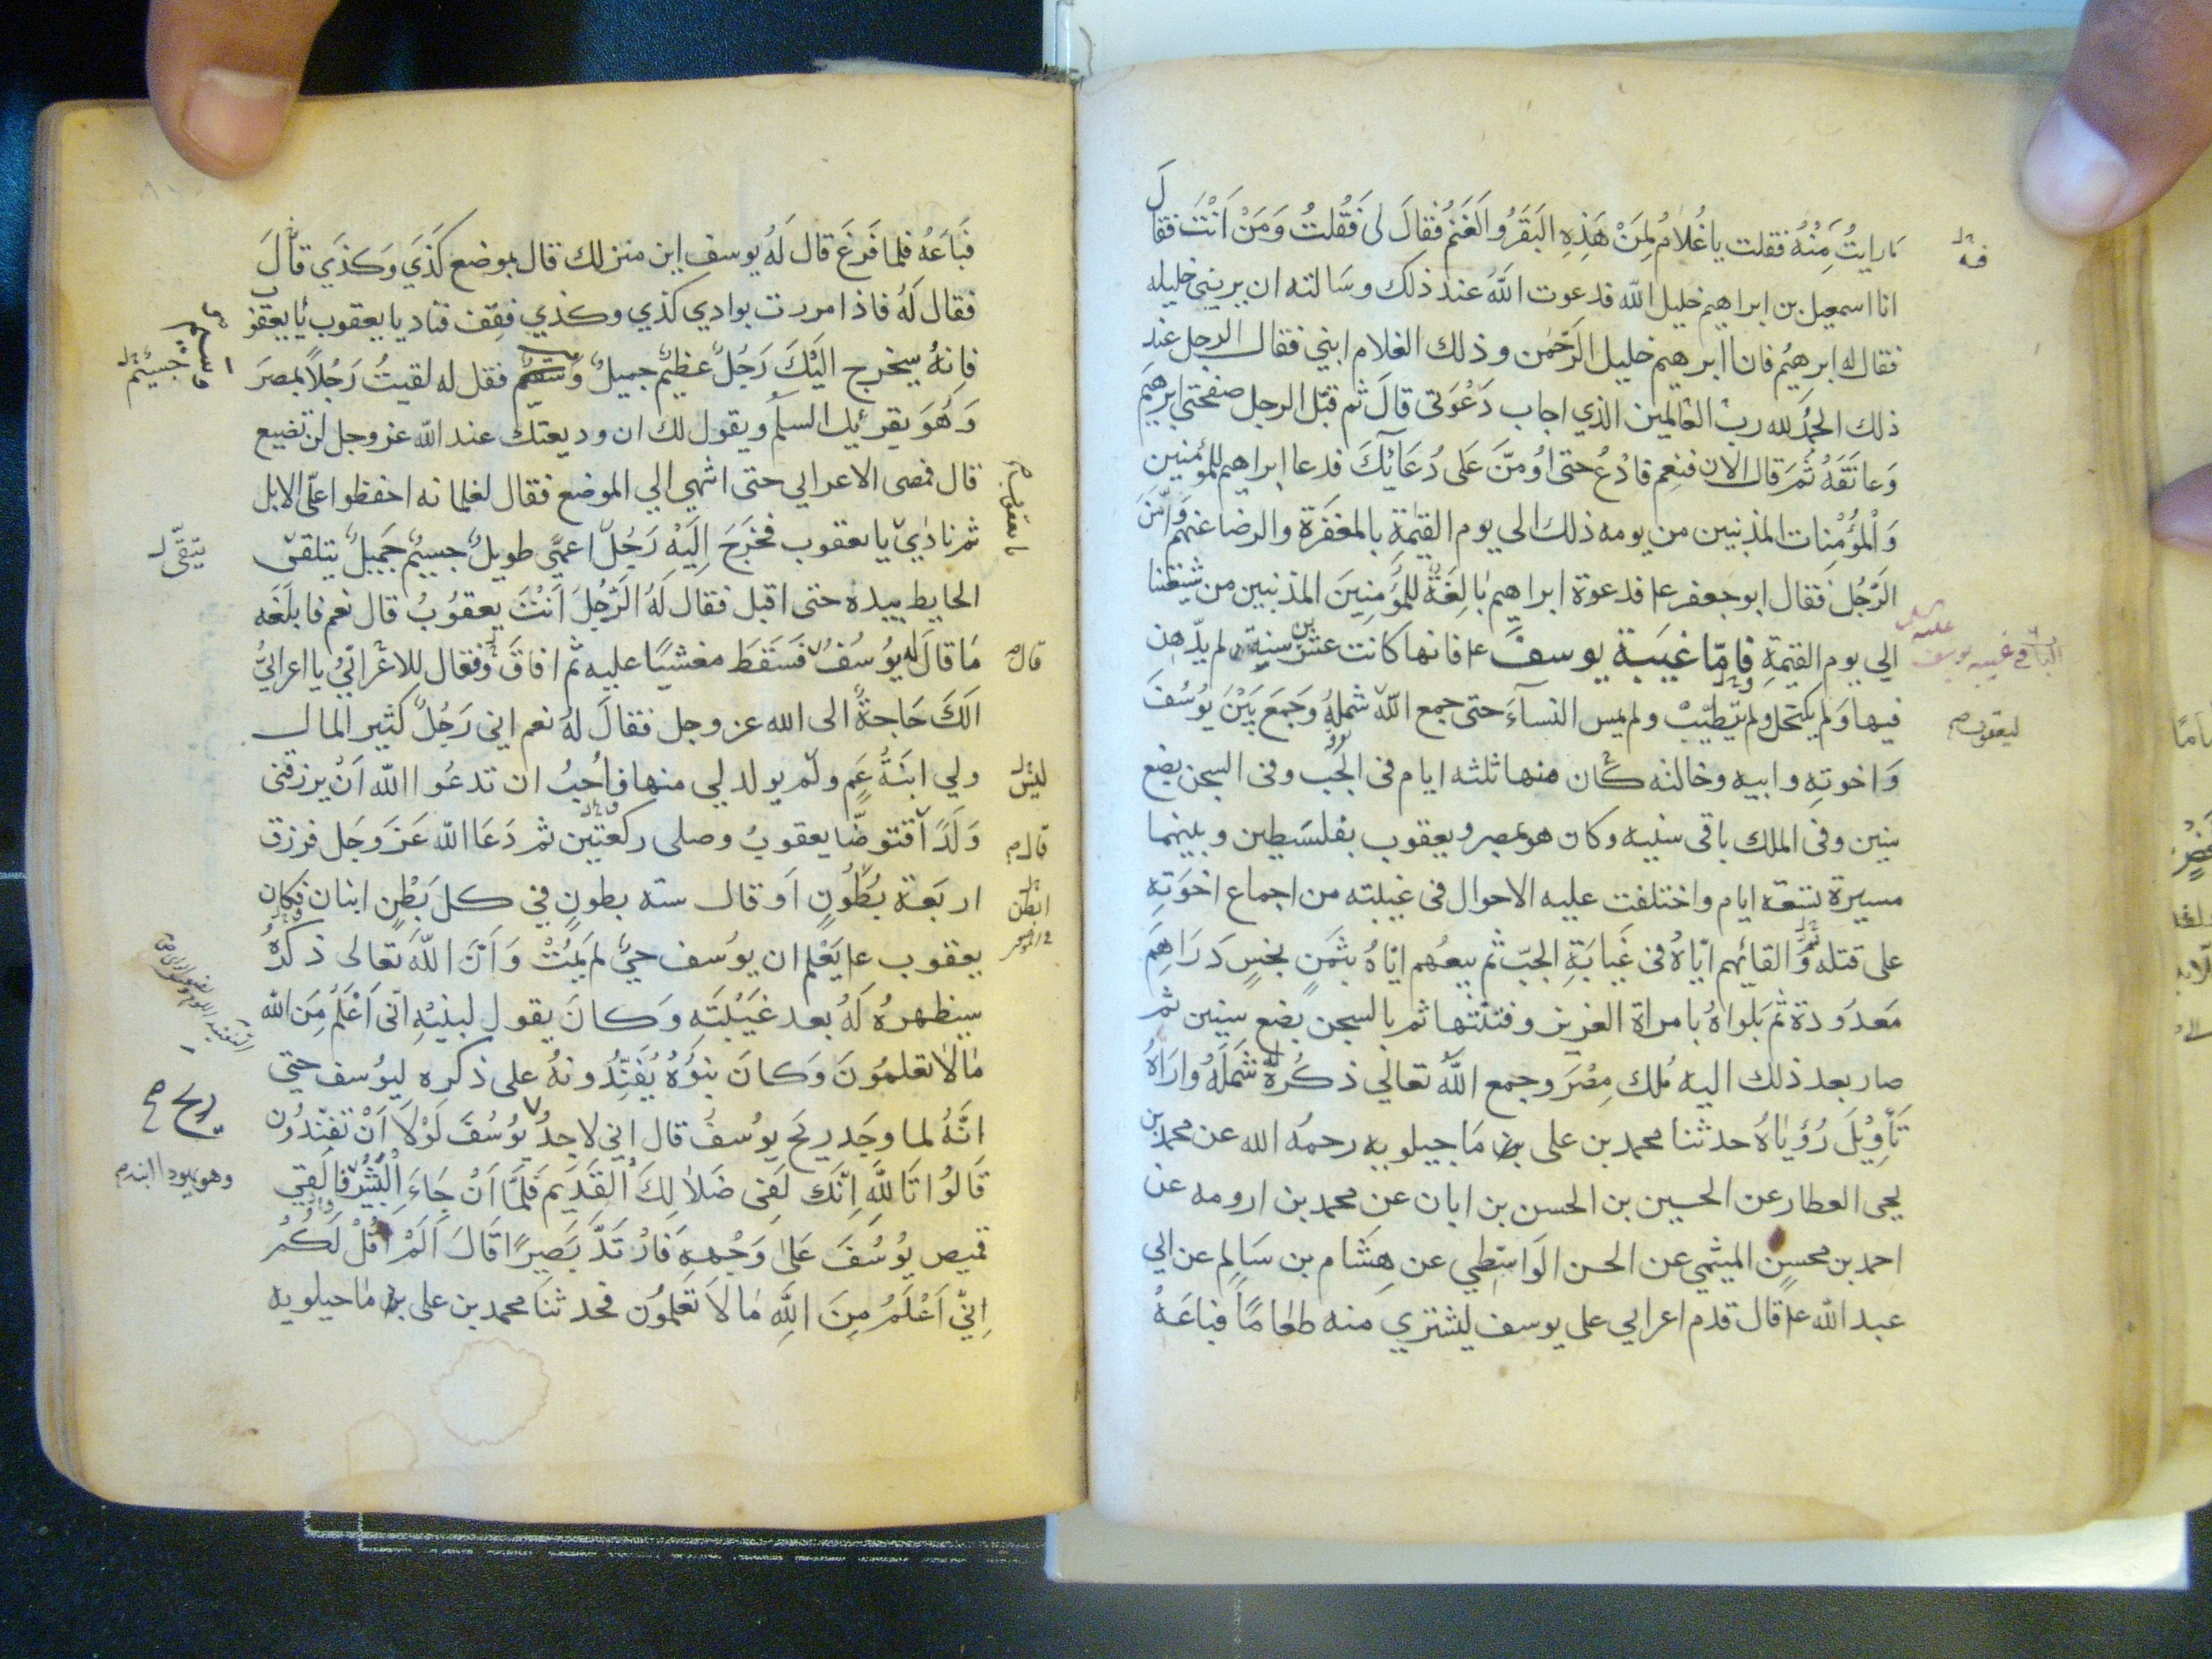 ما رايتُ مِنْهُ فقلت يا غُلامُ لِمَنْ هَذِهِ البَقَرُ والغَنَمُ فقالَ لى فَقُلتُ وَمَنْ اَنْتَ فقالَ
انا اسمعيل بن ابراهيم خليل الله فدعوت اللهَ عند ذلك وسَالته ان يريني خليله
فقال له ابرهيمُ فانا ابرهيم خليل الرَّحمٰن وذلك الغلام ابني فقال الرجل عند
ذلك الحمدُ لله ربّ العالمين الذي اجاب دَعْوَتى قالَ ثم قبّل الرجل صفحتي ابرهيم
وَعانَقَهُ ثُمَّ قال الان فنعم فادْعُ حتى اُومِّنَ عَلى دُعَآئِكَ فدعا ابراهيم للمؤمنين
وَالْمُؤْمِنات المذنبين من يومه ذلك الى يوم القيٰمةِ بالمغفرة والرضا عنهم وَاَمَّنَ
الرَّجُل فقال ابو جعفر ع فدعوة ابراهيم بالِغَةٌ للمُؤمِنِينَ المذنبين من شيعتنا
الى يوم القيٰمةِ فامّا غيبَة يوسفَ ع فانها كانت عشرين سنة لم يدّهن
فيها وَلم يكتحل ولم يتطيّبْ ولم يمس النسآءَ حتى جمع الله شملهُ وَجَمَعَ بَيْنَ يُوسُفَ
وَاخوتِهِ وابيه وخالته كان منها ثلثه ايام فى الجُب وفى السجن بضع
سنين وفى الملك باقى سنيه وكان هو بمصر ويعقوب بفلسَطين وبينهما
مسيرة تسعة ايام واختلفت عليه الاحوال فى غيبته من اجماع اخوَتهِ
على قتله ثُمَّ القائهم ايّاهُ فى غَيابَةِ الجبّ ثم بيعُهم ايّاهُ بثَمَنٍ بخسٍ دَرَاهِمَ
مَعدُودة ثم بَلواهُ بامراة العزيز وفتنتها ثم بالسجن بضع سِنين ثم
صار بعد ذلك اليه مُلك مِصْرَ وجمع اللهُ تعالي ذكرُهُ شَملَهُ وارَاهُ
تَأوِيْلَ رُؤيٰاهُ حدثنا محمد بن على مَاجيلويه رحمهُ الله عن محمد بن
يحيى العطار عن الحسين بن الحسن بن ابان عن محمد بن ارومه عن
احمد بن محسِن الميثمي عن الحسن الوَاسِطِي عن هِشَام بن سَالِم عن ابي
عبد الله ع قال قدم اعرابي على يوسف ليشتري منه طعامًا فباعَهُ
ليعقوب
فَبَاعَهُ فلما فَرغَ قال لَهُ يوسف اين منزلك قال بموضع كَذَي وَكذَي قالَ
فقال لَهُ فاذا مررت بوادي كذي وكذي فقِف فناد يا يعقوب يا يعقوب
فانهُ سيخرج اليْكَ رَجُلٌ عظيمٌ جميلٌ وسيم فقل له لقيتُ رَجُلاً بمصرَ
وَهُوَ يقرئك السلمُ ويقول لك ان وديعتك عند الله عز وجل لن تضيع
قال فمضى الاعرابي حتى انتهي الي الموضع فقال لغلمانه احفظوا عليّ الابل
ثم نادي يا يعقوب فخَرَجَ اِلَيْهِ رَجُلٌ اعمي طويلٌ جسيمٌ جَميلٌ يتلقى
الحايط بيده حتى اقبل فقال لَهُ الرَّجُلَ اَنْتَ يعقوُبُ قال نعم فابلَغَه
مَا قالَ له يُوسُفُ فَسَقَطَ مغشيًا عليه ثم افاقَ وفقال للاعْرابيّ يا اعرابيُّ
الَكَ حَاجةٌ الى الله عز وجل فقالَ لهُ نعم اني رَجُلٌ كثير المال
ولي ابنَةُ عَمٍ ولم يولد لي منها فاُحبُ ان تدعُوا الله اَنْ يرزقنى
وَلَدًا فتوضّا يعقوبُ وصلى ركعتين ثم دَعَا الله عَزَوجَل فرزق
اربَعة بُطُونٍ اَو قال سته بطونٍ في كل بَطْنٍ ابنان فكان
يعقوب ع يَعْلم ان يوُسف حيٌّ لم يَمُتْ وَاَنَّ اللهَ تعالى ذكرهُ
سيظهرهُ لَهُ بعد غَيْبَتَهِ وَكانَ يقول لبنيْهِ اِنّى اَعْلَمُ مِنَ الله
مٰا لا تعلمُونَ وَكانَ بَنوُهُ يُفنِّدُونهُ على ذكره ليوُسف حتي
انَّهُ لما وجَد ريحَ يوُسفُ قال اِني لاجدُ يُوسُفَ لَوْلَا اَنْ تفنّدُونِ
قَالُوا تَاللهِ اِنَّكَ لَفِى ضَلاٰلِكَ القَدِيم فَلمَّا اَنْ جَاءَ الْبَشِيْرُ فالقي
قميص يُوسُفَ عَلٰى وَجْهِهِ فَارْتَدَّ بَصِيرًا قَالَ اَلَمْ اَقُلْ لَكُمْ
اِنّي اَعْلَمُ مِنَ اللهِ مٰا لاَ تَعلَمُوُن فحدثنا محمد بن على ماجيلويه
قال
قال
ابطن
جسيم
ريح
وهو يهودا ابنه